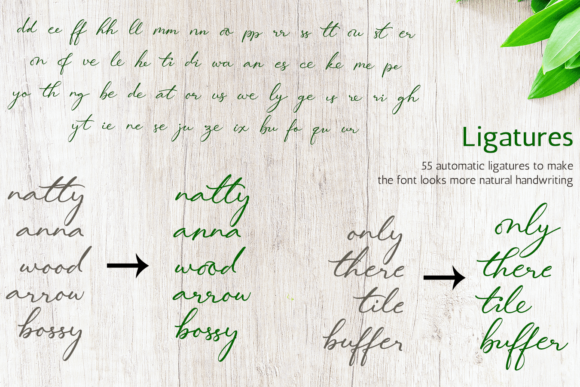 dd ee ff hh ll mm nn oo pp rr ss tt st er
on of ve le he ti di wa an es ce ke me pe
yo th ng be de at or us we ly ge is re ri gh
yt ie ne se ju ze ix bu fo qu ur
Ligatures
55 automatic ligatures to make
the font looks more natural handwriting
natty
anna
wood
arrow
bossy
natty
anna
wood
arrow
bossy
only
there
tile
buffer
only
there
tile
buffer